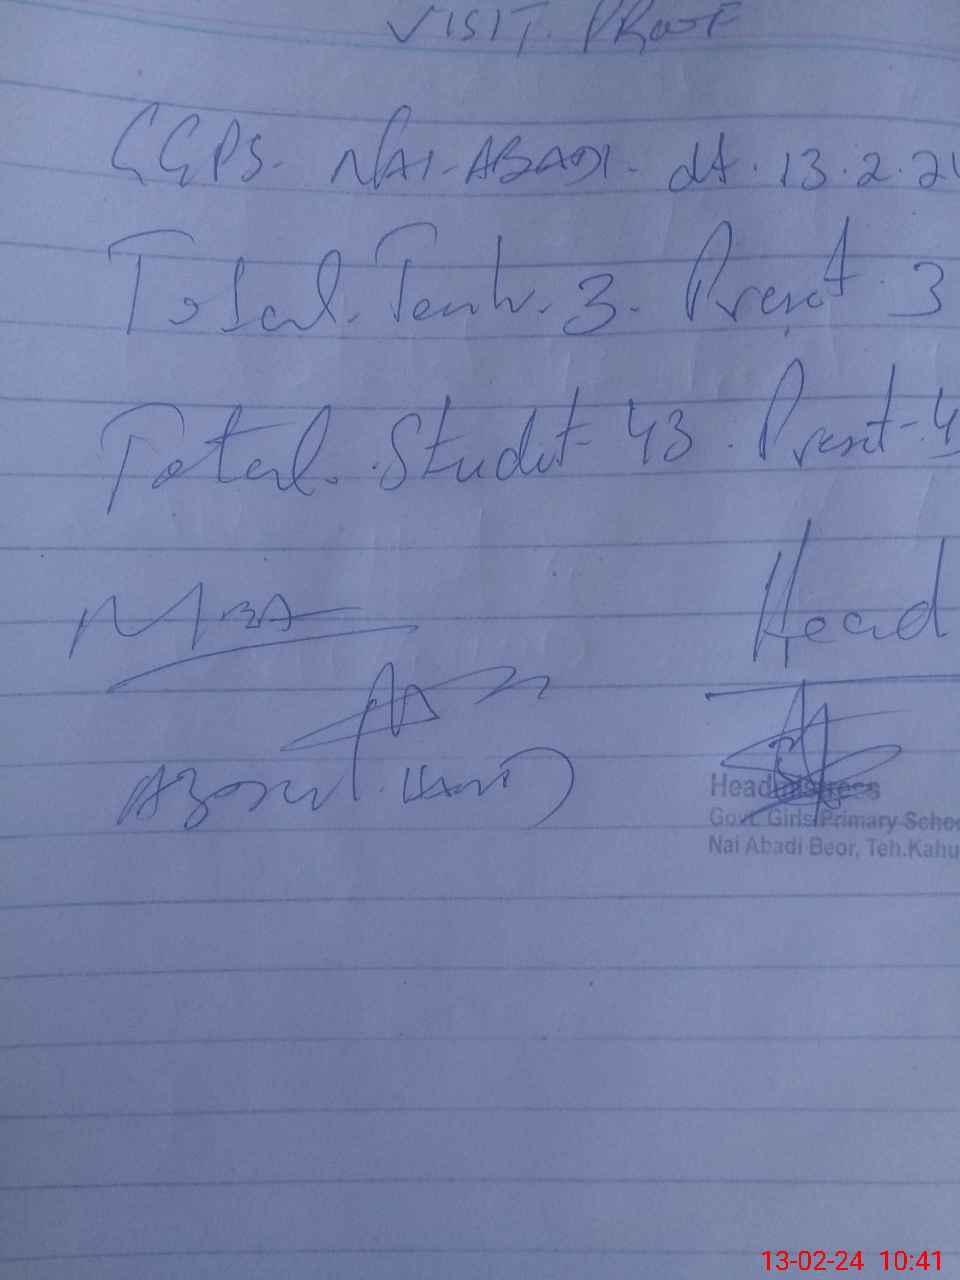 VISIT. PROOF
GGPS- NAI-ABADI- dt. 13.2.24
Total. Teach. 3. Present. 3
Total. Studet- 43. Presnt- 4
MEA
Head
Headmistress
Govt. Girls Primary Schoo
Nai Abadi Beor, Teh.Kahu
13-02-24 10:41